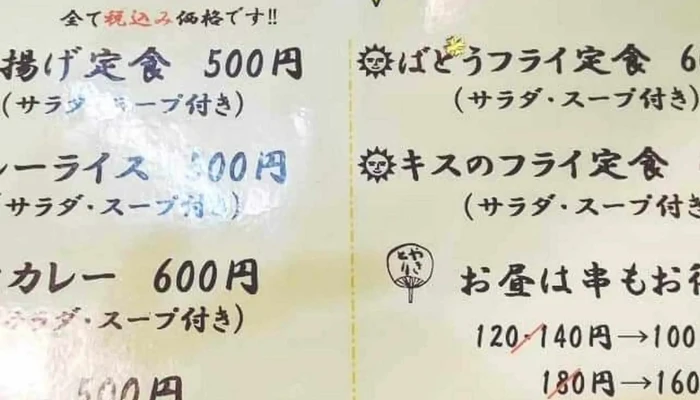 全て税込み価格です!!
揚げ定食 500円
(サラダ・スープ付き)
ーライス 500円
サラダ・スープ付き)
カレー 600円
サラダ・スープ付き)
500円
ばとうフライ定食 6
(サラダ・スープ付き)
キスのフライ定食
(サラダ・スープ付き
やきとり
お昼は串もお得
120・140円→100
180円→160